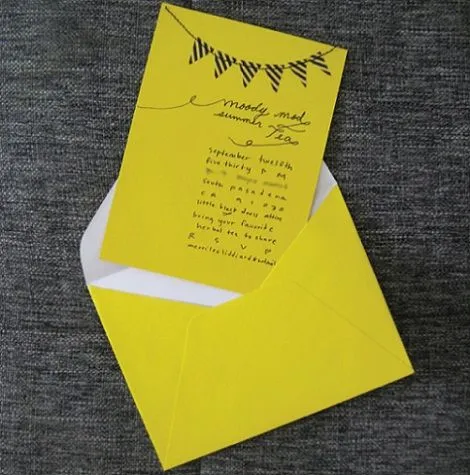 moody mod
summer tea
september twelfth
five thirty P M
south pasadena
C A 9 1 0 3 0
little black dress attire
bring your favorite
herbal tea to share
R S V P